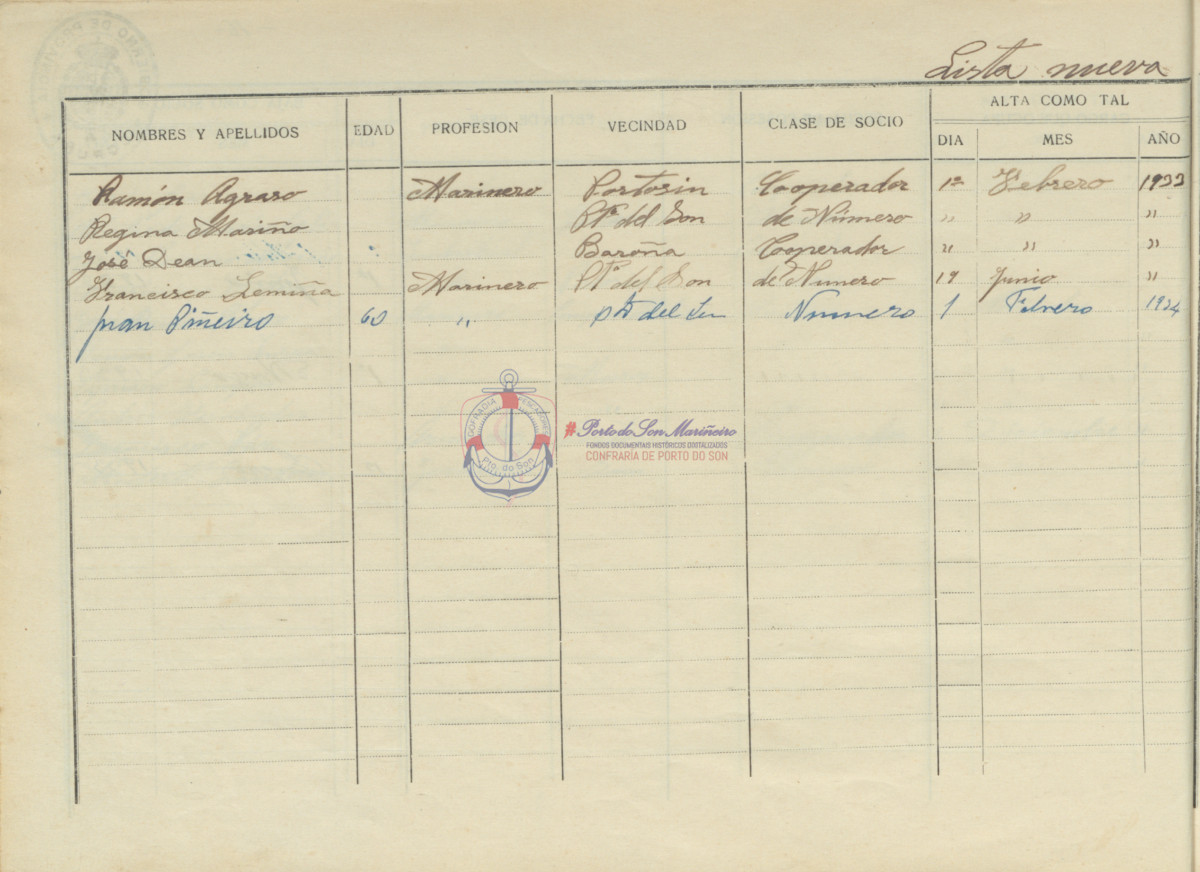 Lista nueva
NOMBRES Y APELLIDOS EDAD PROFESION VECINDAD CLASE DE SOCIO ALTA COMO TAL
DIA MES AÑO
Ramón Agraso Marinero Portosin Cooperador 1º Febrero 1933
Regina Mariño Pto del Son de Número " " "
José Dean Baroña Cooperador " " "
Francisco Lemiña Marinero Pto del Son de Numero 19 Junio "
Juan Piñeiro 60 " pto del Son Numero 1 Febrero 1934
COFRADIA PESCADORES
Pto. do Son
#Porto do Son Mariñeiro
FONDOS DOCUMENTAIS HISTÓRICOS DIXITALIZADOS
CONFRARÍA DE PORTO DO SON